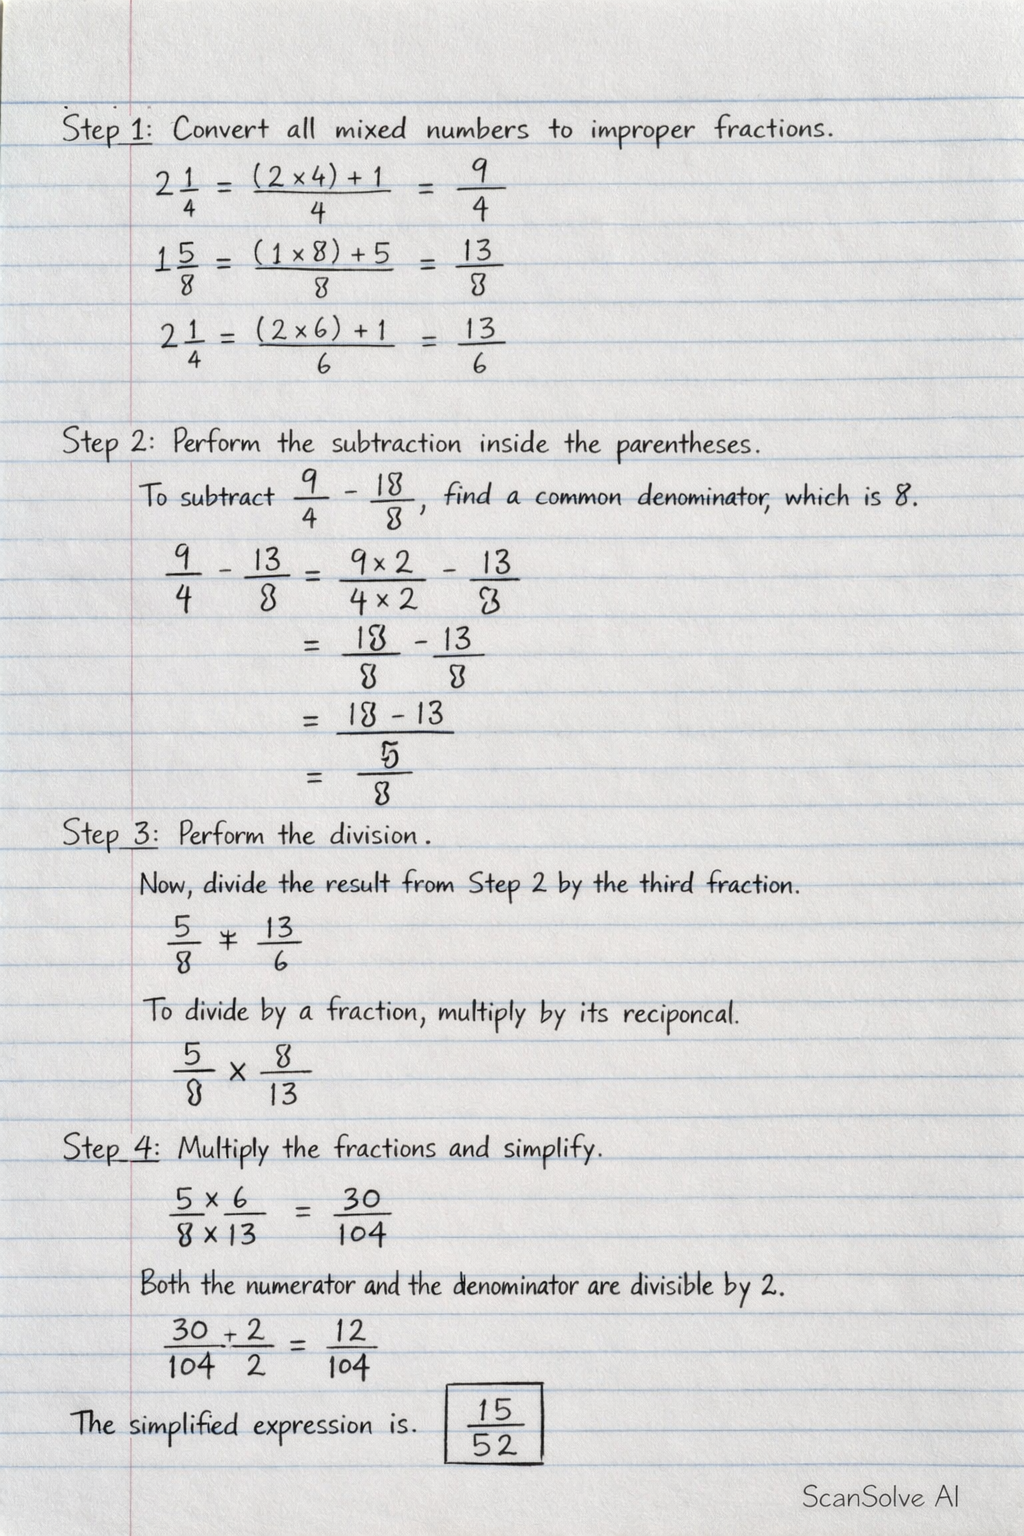 Step 1: Convert all mixed numbers to improper fractions.
2 1/4 = (2 × 4) + 1 / 4 = 9/4
1 5/8 = (1 × 8) + 5 / 8 = 13/8
2 1/4 = (2 × 6) + 1 / 6 = 13/6
Step 2: Perform the subtraction inside the parentheses.
To subtract 9/4 - 18/8, find a common denominator, which is 8.
9/4 - 13/8 = 9 × 2 / 4 × 2 - 13/8
= 18/8 - 13/8
= 18 - 13
= 5/8
Step 3: Perform the division.
Now, divide the result from Step 2 by the third fraction.
5/8 ∓ 13/6
To divide by a fraction, multiply by its reciponcal.
5/8 × 8/13
Step 4: Multiply the fractions and simplify.
5 × 6 / 8 × 13 = 30/104
Both the numerator and the denominator are divisible by 2.
30/104 + 2/2 = 12/104
The simplified expression is. 15/52
ScanSolve AI